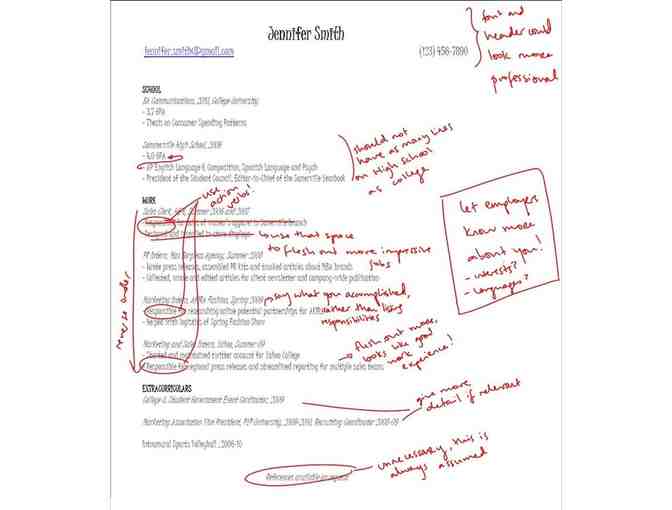 Jennifer Smith
jennifer.smith@gmail.com
(123) 456-7890
font and
header could
look more
professional
SCHOOL
BA Communications, 2010, College University
- 3.7 GPA
- Thesis on Consumer Spending Patterns
Sommerville High School, 2006
- 4.0 GPA
- AP English Language & Composition, Spanish Language and Psych
- President of the Student Council, Editor-in-Chief of the Somerville Yearbook
should not
have as many lines
on High School
as college
use
action
verbs!
WORK
Sales Clerk, Summer 2006 and 2007
use that space
to flesh out more impressive
jobs
PR Intern, Summer 2008
- Wrote press releases, assembled PR kits and tracked articles about M&A brands
- Collected, wrote and edited articles for client newsletter and company-wide publication
Marketing Intern, Spring 2009
- Responsible for researching online potential partnerships for
- Helped with logistics of Spring Fashion Show
say what you accomplished,
rather than listing
responsibilities
Marketing and Sales Intern, Yahoo, Summer 09
- Created and maintained twitter account for Yahoo College
- Responsible for regional press releases and streamlined reporting for multiple sales teams
flesh out more,
looks like good
work
experience!
reverse order
let employers
know more
about you!
- interests?
- languages?
EXTRACURRICULARS
College & Student Government Event Coordinator, 2009
Marketing Association Vice President, 2009-2010, Recruiting Coordinator 2008-09
Intramural Sports Volleyball, 2006-10
give more
detail if relevant
References available on request
unnecessary, this is
always assumed